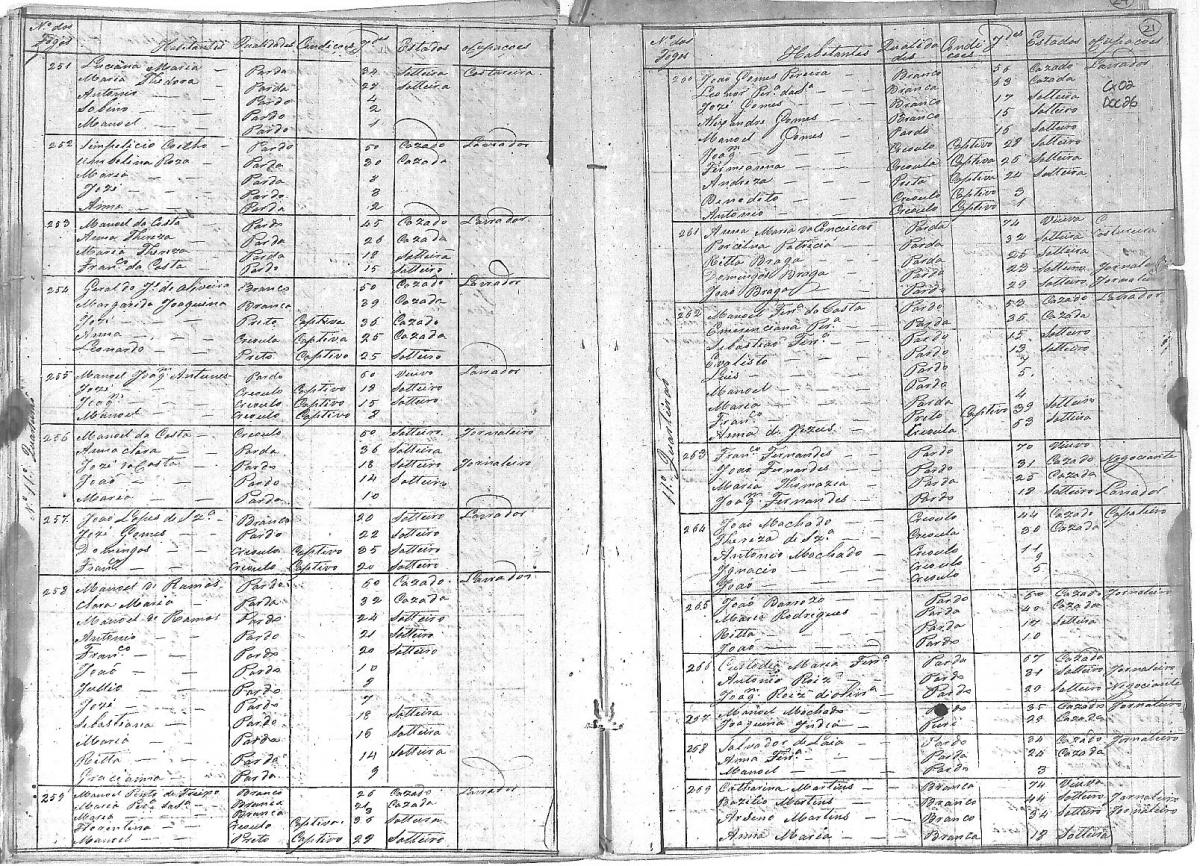 Nº dos Fogos Habitantes Qualidades Condições Ides Estados Ocupações
251 Luciana Maria — Parda 34 Solteira Costureira
Maria Theodora Parda 22 Solteira
Antonio — — Pardo 4
Sabino — — Pardo 2
Manoel — — Pardo 1
252 Simpelicio Coelho — Pardo 50 Cazado Lavrador
Umbelina Roza — Parda 30 Cazada
Maria — — Parda 8
Jozé — — Pardo 3
Anna — — Parda 2
253 Manoel da Costa Pardo 45 Cazado Lavrador
Anna Thereza Parda 26 Cazada
Maria Thereza — Parda 18 Solteira
Franco da Costa — Pardo 15 Solteiro
254 Geraldo Je de Oliveira Branco 50 Cazado Lavrador
Margarida Joaquina Branca 39 Cazada
Jozé — — Preto Captivo 36 Cazado
Anna — — Creoula Captiva 25 Cazada
Leonardo — — Preto Captivo 25 Solteiro
255 Manoel Joaqm Antunes Pardo 50 Viuvo Lavrador
Jozé — — Creoulo Captivo 19 Solteiro
Joaqm — — Creoulo Captivo 15 Solteiro
Manoel — — Creoulo Captivo 8
256 Manoel da Costa — Creoulo 50 Solteiro Jornaleiro
Anna Clara — Parda 36 Solteira
Jozé da Costa — Pardo 18 Solteiro Jornaleiro
João — — Pardo 14 Solteiro
Maria — — Parda 10
257 João Lopes de Sza Branco 20 Solteiro Lavrador
Jozé Gomes — Pardo 22 Solteiro
Domingos — Creoulo Captivo 35 Solteiro
Franco — — Creoulo Captivo 20 Solteiro
258 Manoel de Ramos Pardo 50 Cazado Lavrador
Clara Maria — Parda 32 Cazada
Manoel de Ramos Pardo 24 Solteiro
Antonio — — Pardo 21 Solteiro
Franco — — Pardo 20 Solteiro
João — — Pardo 10
Jullio — — Pardo 8
Jozé — — Pardo 7
Sebastiana — — Parda 18 Solteira
Maria — — Parda 15 Solteira
Ritta — — Parda 14 Solteira
Gracianna — — Parda 9
259 Manoel Branco 26 Cazado Lavrador
Maria Branca Cazada
Maria — — Branca 3
Florentina — Creoula Captiva 26 Solteira
Manoel — — Preto Captivo 29 Solteiro
Nº 11º Quarteirão
21
Nº dos Fogos Habitantes Qualidades Condições Ides Estados Ocupações
CX02
DOC26
260 João Gomes Pereira — Branco 56 Cazado Lavrador
Leonor Branca 53 Cazada
Jozé Gomes — Branco 17 Solteiro
Alexandre Gomes — Branco 15 Solteiro
Manoel Gomes — Pardo 16 Solteiro
Joaqm — — Creoulo Captivo 28 Solteiro
Fermianna — — Creoula Captiva 25 Solteira
Andreza — — Preta Captiva 24 Solteira
Benedito — — Creoulo Captivo 3
Antonio — — Creoulo Captivo 1
261 Anna Maria da Conceicao Parda 74 Viuva
Porcelina Patricia — Parda 32 Solteira Costureira
Ritta Braga — Parda 25 Solteira
Domingos Braga — Pardo 23 Solteiro
João Braga — Pardo 29 Solteiro
262 Manoel Ferra da Costa Pardo 52 Cazado Lavrador
Emerenciana Parda 36 Cazada
Sebastiao Ferra Pardo 15 Solteiro
Evalisto — — Pardo 13 Solteiro
Luis — — Pardo 7
Manoel — — Pardo 5
Maria — — Parda 4
Franco — — Preto Captivo 39 Solteiro
Anna de Jezus — Creoula 53 Solteira
263 Franco Fernandes — Pardo 70 Viuvo
João Fernandes — Pardo 31 Cazado Negociante
Maria Thomazia — Parda 25 Cazada
Joaqm Fernandes — Pardo 18 Solteiro Lavrador
264 João Machado — Creoulo 44 Cazado Çapateiro
Thereza de Sza — Creoula 30 Cazada
Antonio Machado — Creoulo 11
Ignacio — — Creoulo 9
João — — Creoulo 5
265 João Barrozo — Pardo 50 Cazado Jornaleiro
Maria Rodrigues Parda 40 Cazada
Ritta — — Parda 17 Solteira
João — — Pardo 10
266 Custodio Maria Ferra Pardo 67 Cazado
Antonio Roiz Pardo 31 Solteiro Jornaleiro
Joaqm Roiz Pardo 29 Solteiro Negociante
267 Manoel Machado — 35 Cazado Jornaleiro
Joaquina India — 25 Cazada
268 Salvador de Laia — Pardo 34 Cazado Jornaleiro
Anna Ferra — Parda 24 Cazada
Manoel — — Pardo 3
269 Catharina Martins — Branca 74 Viuva
Bazilio Martins — Branco 44 Solteiro Jornaleiro
Martins — Branco 34 Solteiro Jornaleiro
Anna Maria — Branca 18 Solteira
11º Quarteirão